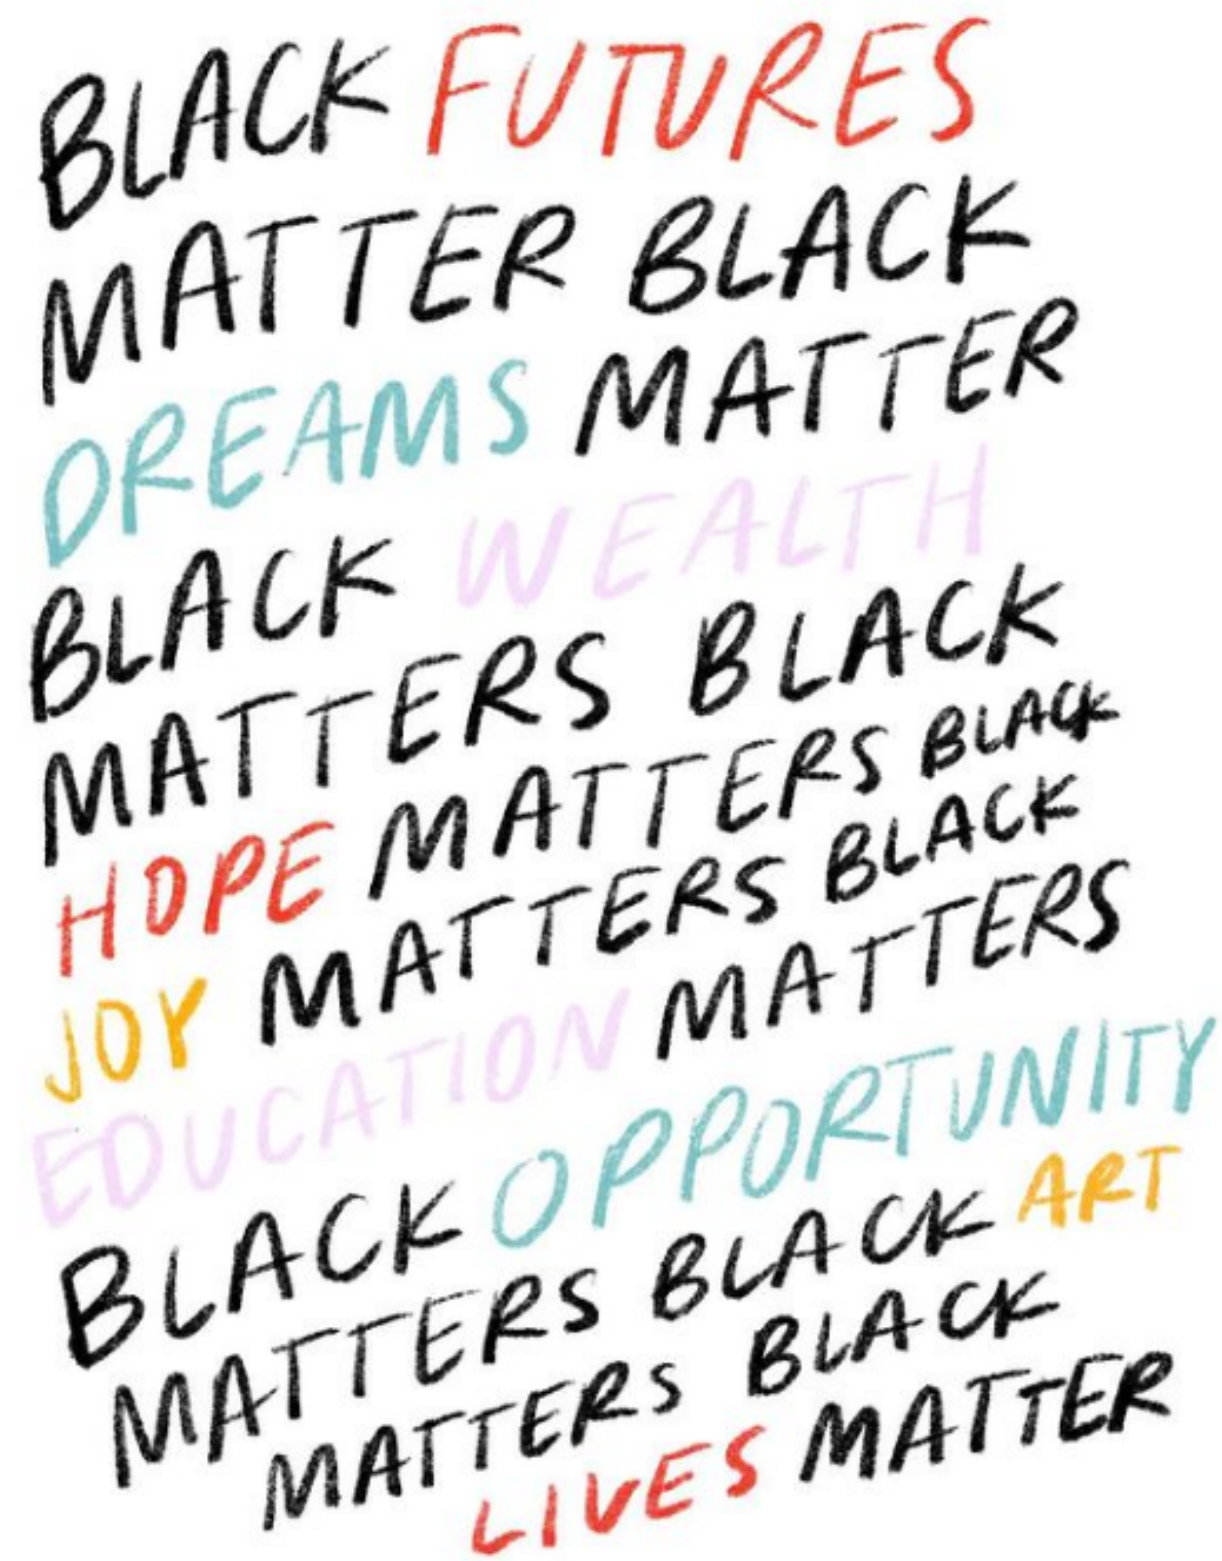 BLACK FUTURES
MATTER BLACK
DREAMS MATTER
BLACK WEALTH
MATTERS BLACK
HOPE MATTERS BLACK
JOY MATTERS BLACK
EDUCATION MATTERS
BLACK OPPORTUNITY
MATTERS BLACK ART
MATTERS BLACK
LIVES MATTER